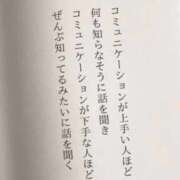 コミュニケーションが上手い人ほど
何も知らなそうに話を聞き
コミュニケーションが下手な人ほど
ぜんぶ知ってるみたいに話を聞く